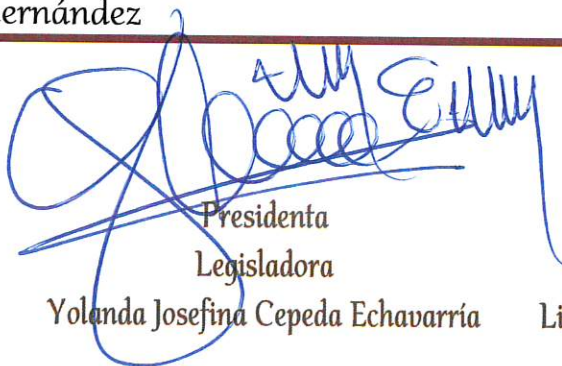 ernández
Presidenta
Legisladora
Yolanda Josefina Cepeda Echavarría Li